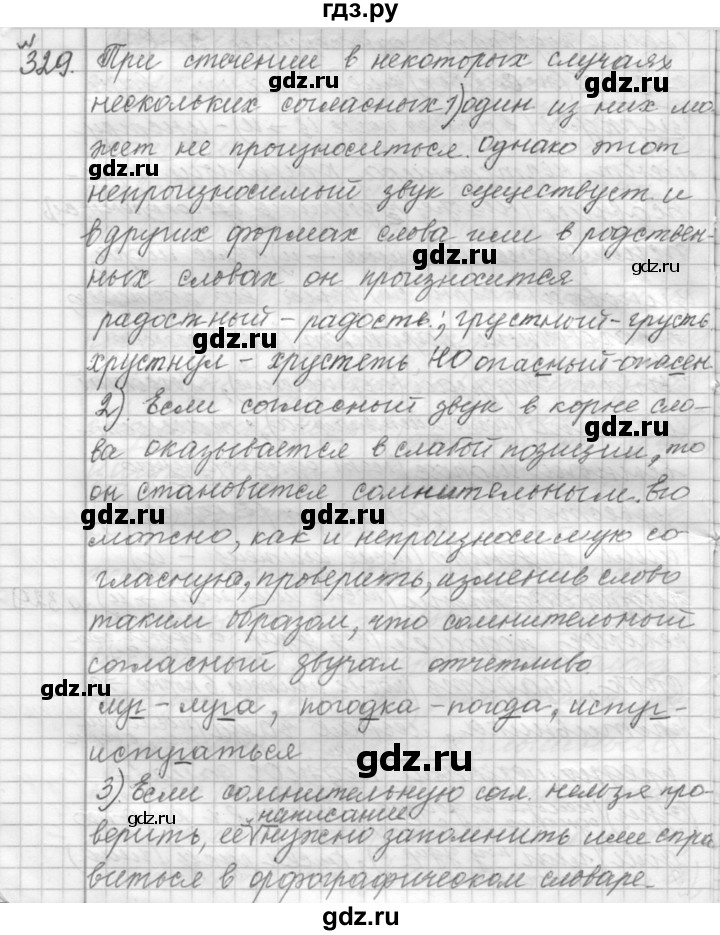 гдз.ру
№
329. При стечении в некоторых случаях
gdz.ru gdz.ru
нескольких согласных 1) один из них мо-
жет не произноситься. Однако этот
gdz.ru gdz.ru
непроизносимый звук существует и
в других формах слова или в родствен-
gdz.ru gdz.ru
ных словах он произносится
радостный – радость; грустный – грусть
gdz.ru
хрустнул – хрустеть НО опасный – опасен
2). Если согласный звук в корне сло-
gdz.ru
ва оказывается в слабой позиции, то
он становится сомнительным. Его
gdz.ru gdz.ru
можно, как и непроизносимую со
гласную, проверить, изменив слово
таким образом, что сомнительный
согласный звучал отчетливо
gdz.ru
луг – луга, погодка – погода, испуг –
испугаться
gdz.ru
3). Если сомнительную согл. нельзя про-
написание
gdz.ru
верить, её нужно запомнить или спра
виться в орфографическом словаре.
gdz.ru gdz.ru
gdz.ru